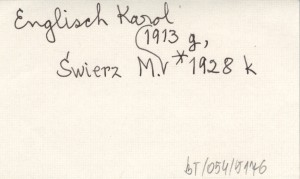 Englisch Karol
1913 g,
Świerz M. *1928 k
bT/054/5176